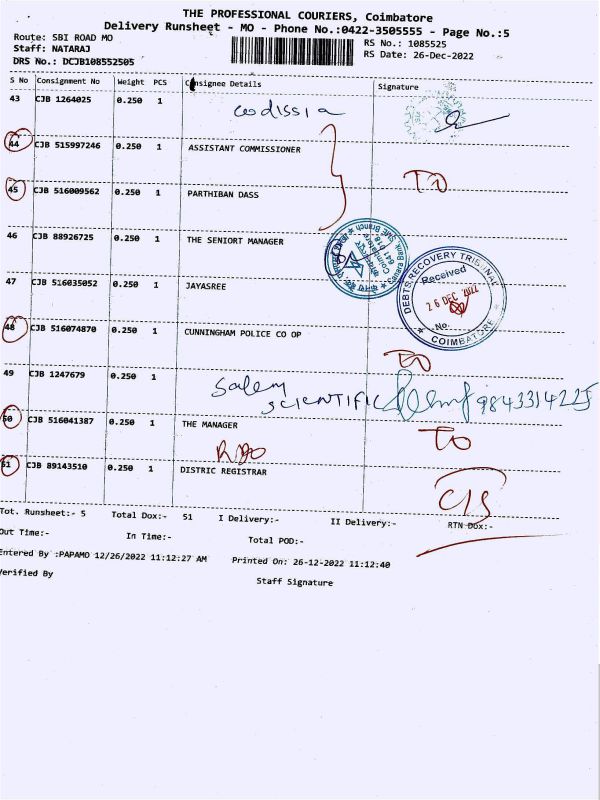 THE PROFESSIONAL COURIERS, Coimbatore
Delivery Runsheet - MO - Phone No.:0422-3505555 - Page No.:5
Route: SBI ROAD MO
RS No.: 1085525
Staff: NATARAJ
RS Date: 26-Dec-2022
DRS No.: DCJB108552505
S No Consignment No Weight PCS Consignee Details Signature
43 CJB 1264025 0.250 1 codissia
44 CJB 515997246 0.250 1 ASSISTANT COMMISSIONER
45 CJB 516009562 0.250 1 PARTHIBAN DASS
46 CJB 88926725 0.250 1 THE SENIORT MANAGER
Canara Bank, SME Branch
Coimbatore
DEBTS RECOVERY TRIBUNAL
Received
26 DEC 2022
No.
COIMBATORE
47 CJB 516035052 0.250 1 JAYASREE
48 CJB 516074870 0.250 1 CUNNINGHAM POLICE CO OP
49 CJB 1247679 0.250 1 Salem
SCIENTIFIC 9843314225
50 CJB 516041387 0.250 1 THE MANAGER
51 CJB 89143510 0.250 1 DISTRIC REGISTRAR
Tot. Runsheet:- 5 Total Dox:- 51 I Delivery:- II Delivery:- RTN Dox:-
Out Time:- In Time:- Total POD:-
Entered By :PAPAMO 12/26/2022 11:12:27 AM Printed On: 26-12-2022 11:12:40
Verified By Staff Signature